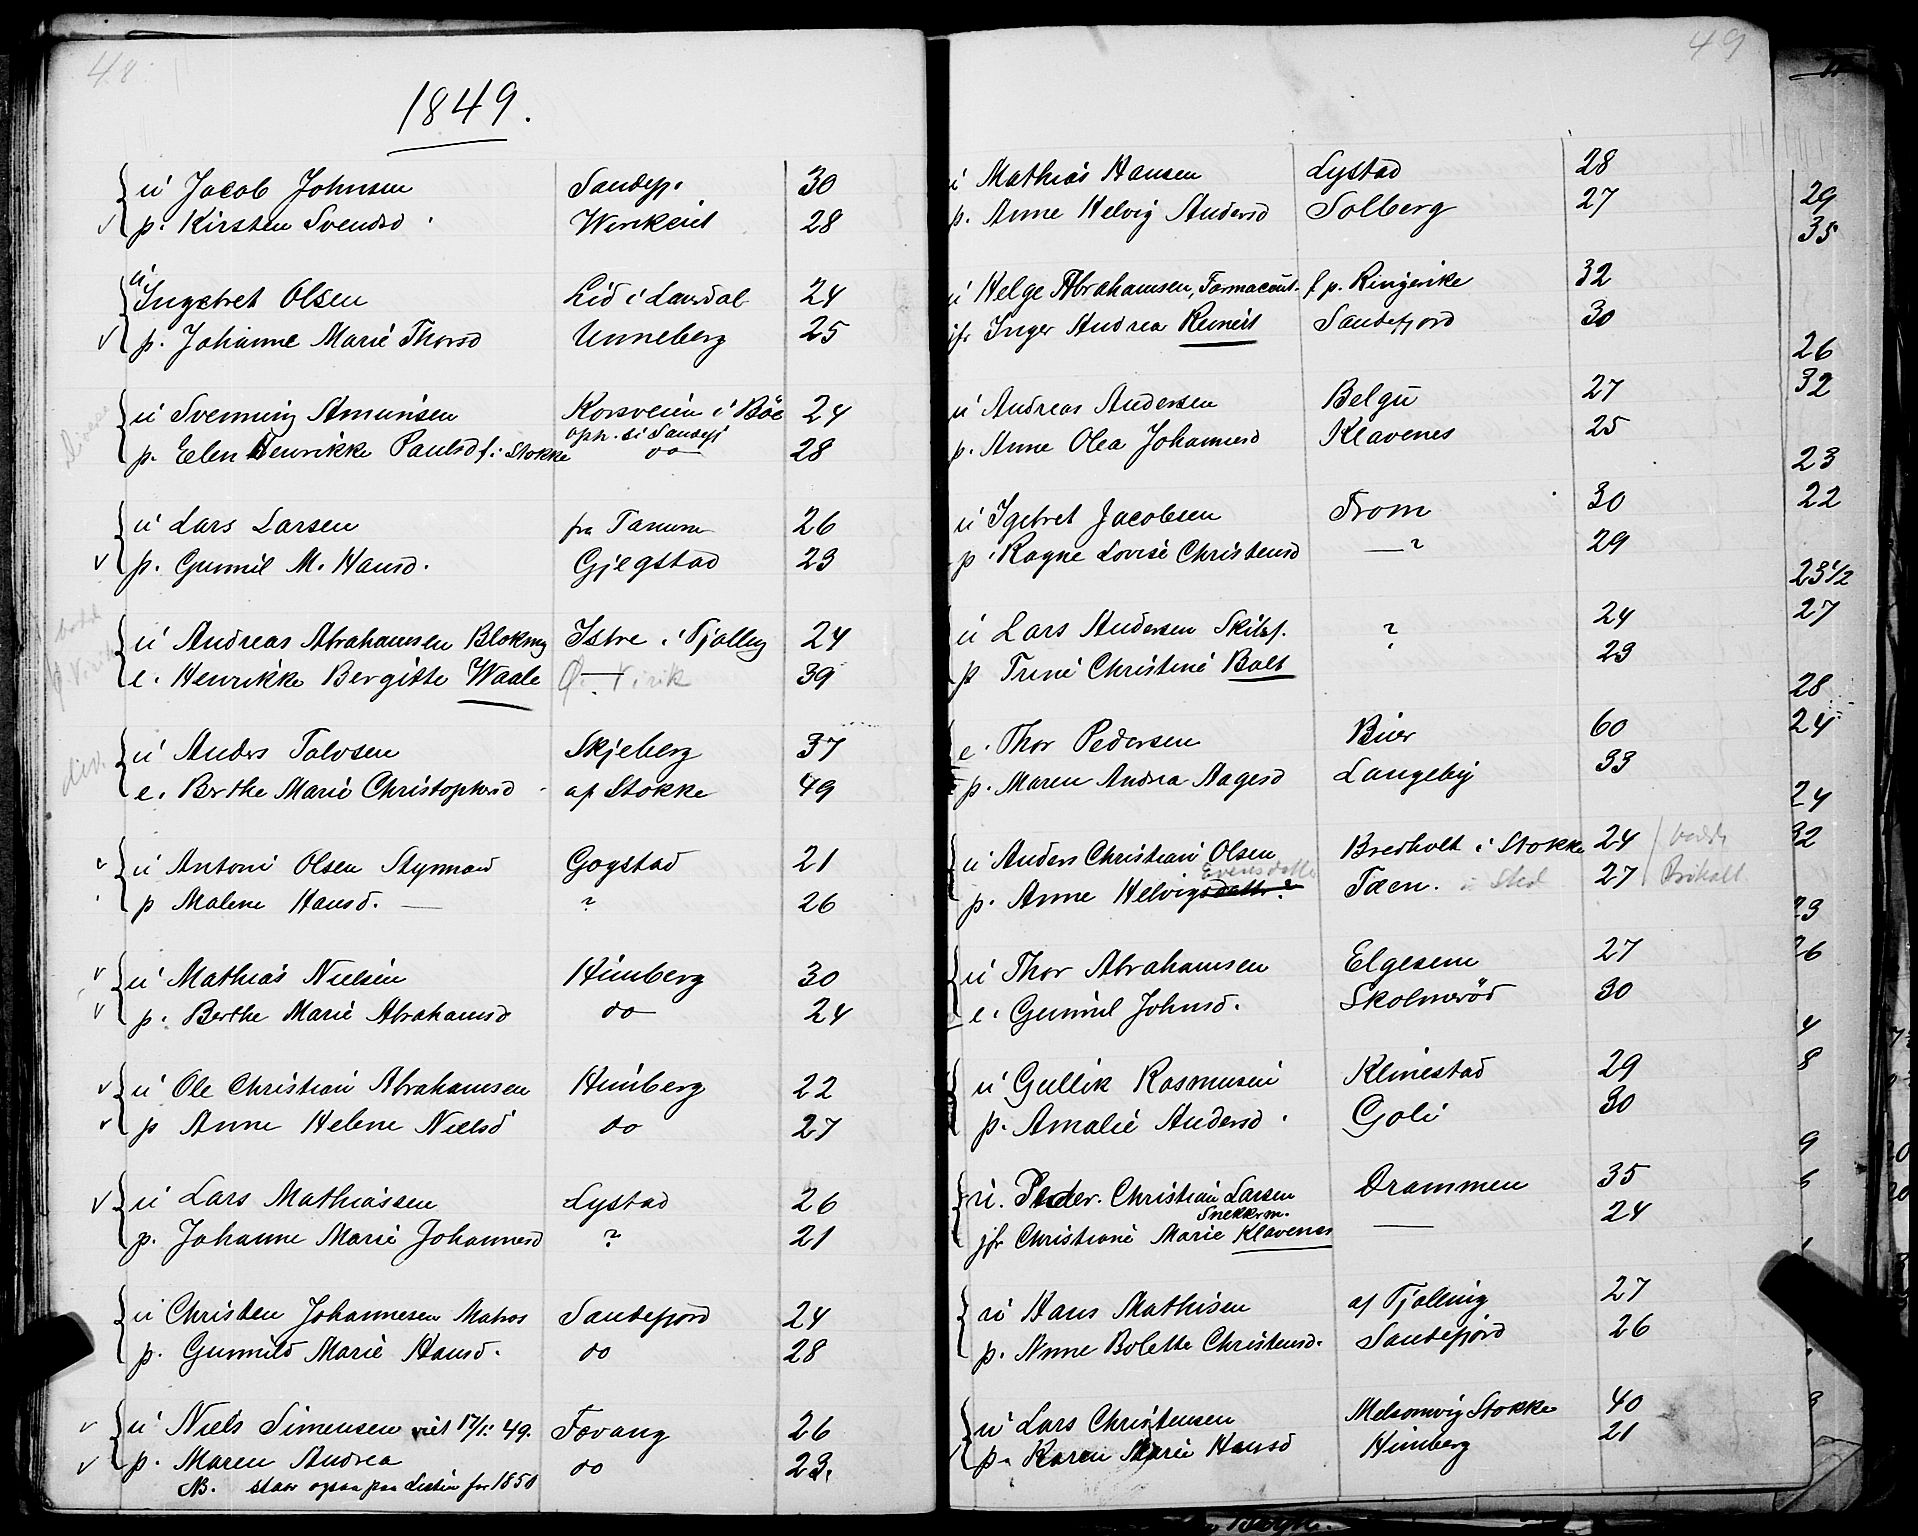 48
1849.
u Jacob Johnsen Sandefj. 30
p. Kirsten Svendsd 28
u Ingebret Olsen Lid i Laurdal 24
p. Johanne Marie Thorsd Unneberg 25
u Svenning Amunsen Korsveien i Böe 24
oph. i Sandefj
p. Elen Henrikke Paulsd f. i Stokke do 28
u Lars Larsen fra Tanum 26
p. Gunnil M. Hansd. Gjegstad 23
u Andreas Abrahamsen Blokmg Istre i Tjølling 24
e. Henrikke Bergitte Waale Virik 39
u Anders Tolvsen Skjeberg 37
e. Berthe Marie Christophersd af Stokke 49
u Antoni Olsen Styrmand Gogstad 21
p Malene Hansd. — ? 26
u Mathias Nielsen Himberg 30
p. Berthe Marie Abrahamsd do 24
u Ole Christian Abrahamsen Himberg 22
p Anne Helene Nielsd do 27
u Lars Mathiassen Lystad 26
p. Johanne Marie Johannesd ? 21
u Christen Johannesen Matros Sandefjord 24
p. Gunnild Marie Hansd. do 28
u Niels Simensen viet 17/1. 49. Fevang 26
p. Maren Andrea do 23.
NB. staar ogsaa paa Listen for 1850
49
u Mathias Hansen Lystad 28
p. Anne Helvig Andersd Solberg 27
u Helge Abrahamsen, Farmaceut. f. p. Ringerike 32
jfr Inger Andrea Reinert Sandefjord 30
u Andreas Andersen Belgu 27
p. Anne Olea Johannesd Klavenes 25
u Igebret Jacobsen From 30
p. Ragne Lovise Christensd —? 29
u Lars Andersen Skibsf. ? 24
p Trine Christine Bolt 23
e. Thor Pedersen Buer 60
p. Maren Andrea Aagesd Langeby 33
u Anders Christian Olsen Bredholt i Stokke 24
Evensdatter
p. Anne Helvigsdattr? Tæen. 27
u Thor Abrahamsen Elgesem 27
e. Gunnil Johnsd. Skolmerød 30
u Gullik Rasmusen Klinestad 29
p. Amalie Andersd. Goli 30
u. Peder Christian Larsen Drammen 35
Snekkerm.
jfr Christiane Marie Klavenes — 24
u Hans Mathisen af Tjølling 27
p. Anne Bolette Christensd. Sandefjord 26
u Lars Christensen Melsomvig Stokke 40
p. Karen Marie Hansd Himberg 21
29
35
26
32
23
22
23 1/2
27
28
24
24
32
23
26
4
8
9